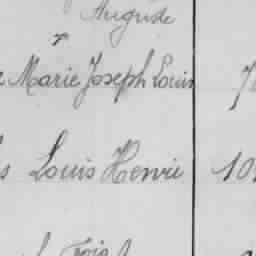 Auguste
e Marie Joseph Louis 7
s Louis Henri 10